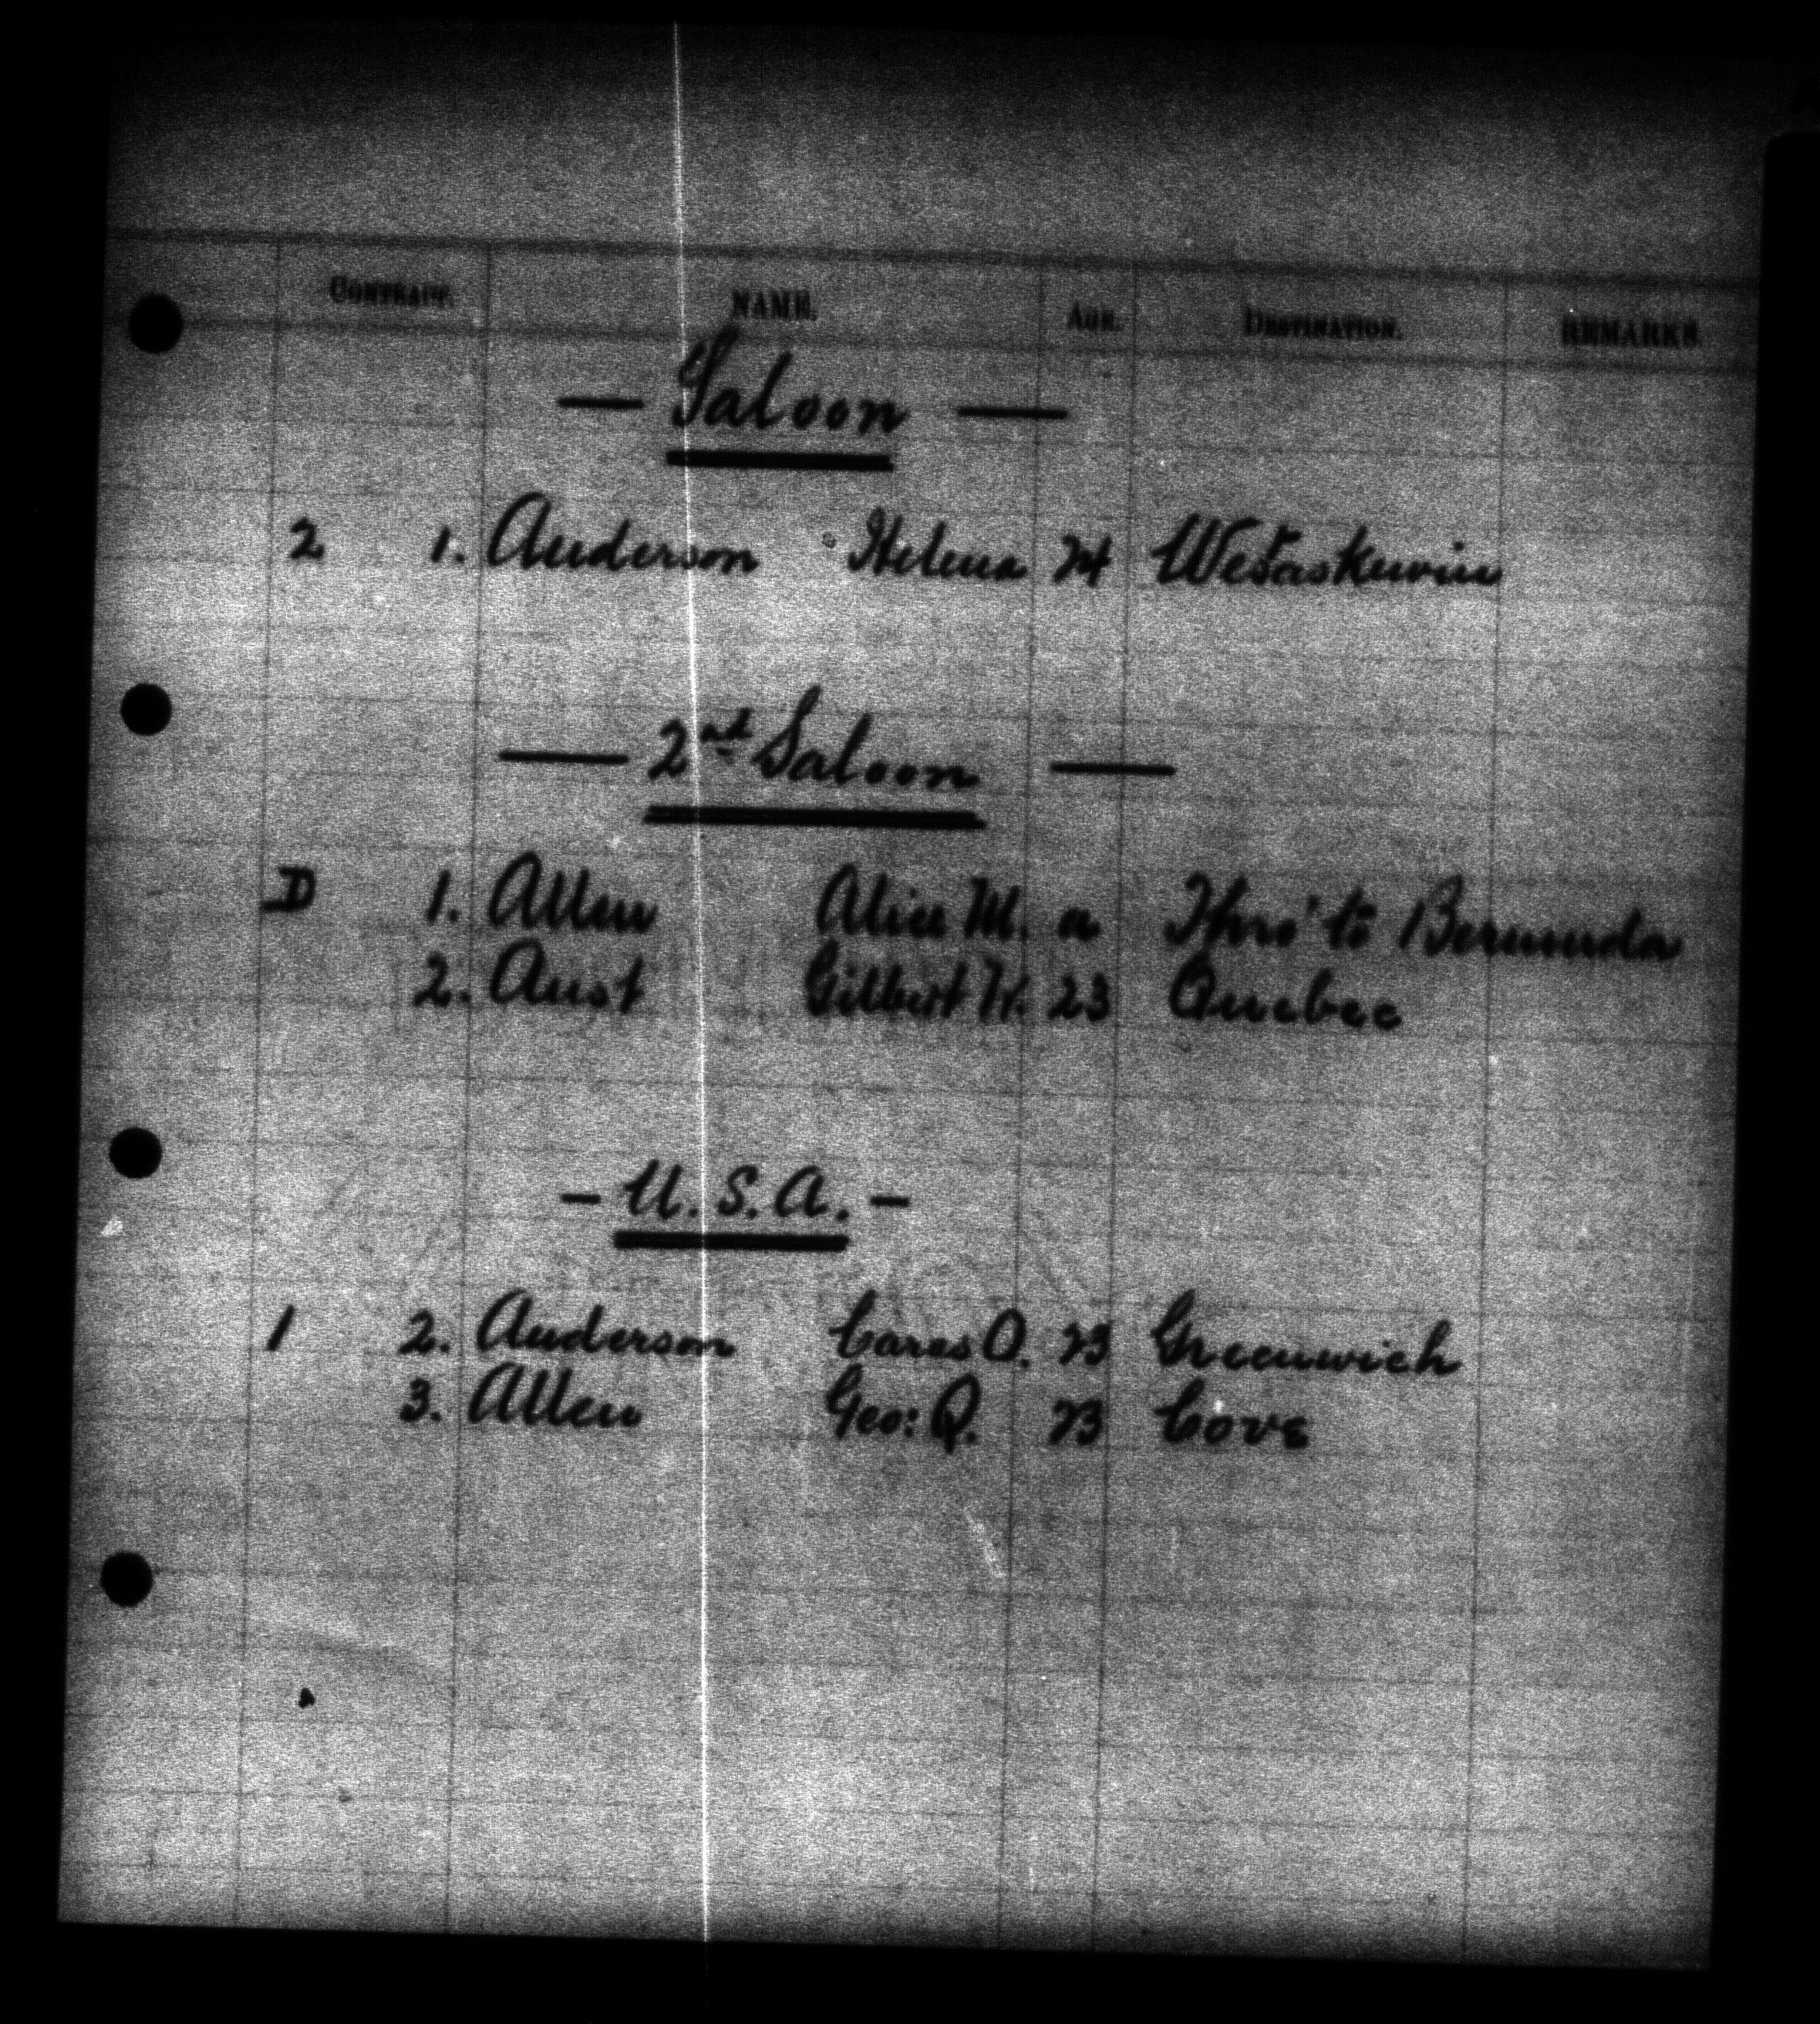 CONTRACT. NAME. AGE. DESTINATION. REMARKS.
— Saloon —
2 1. Anderson Helena 24 Wetaskuwin
— 2nd Saloon —
D 1. Allen Alice M. a Thro' to Bermuda
2. Aust Gilbert W. 23 Quebec
- U.S.A. -
1 2. Anderson O. 23 Greenwich
3. Allen Geo: Q. 23 Cove